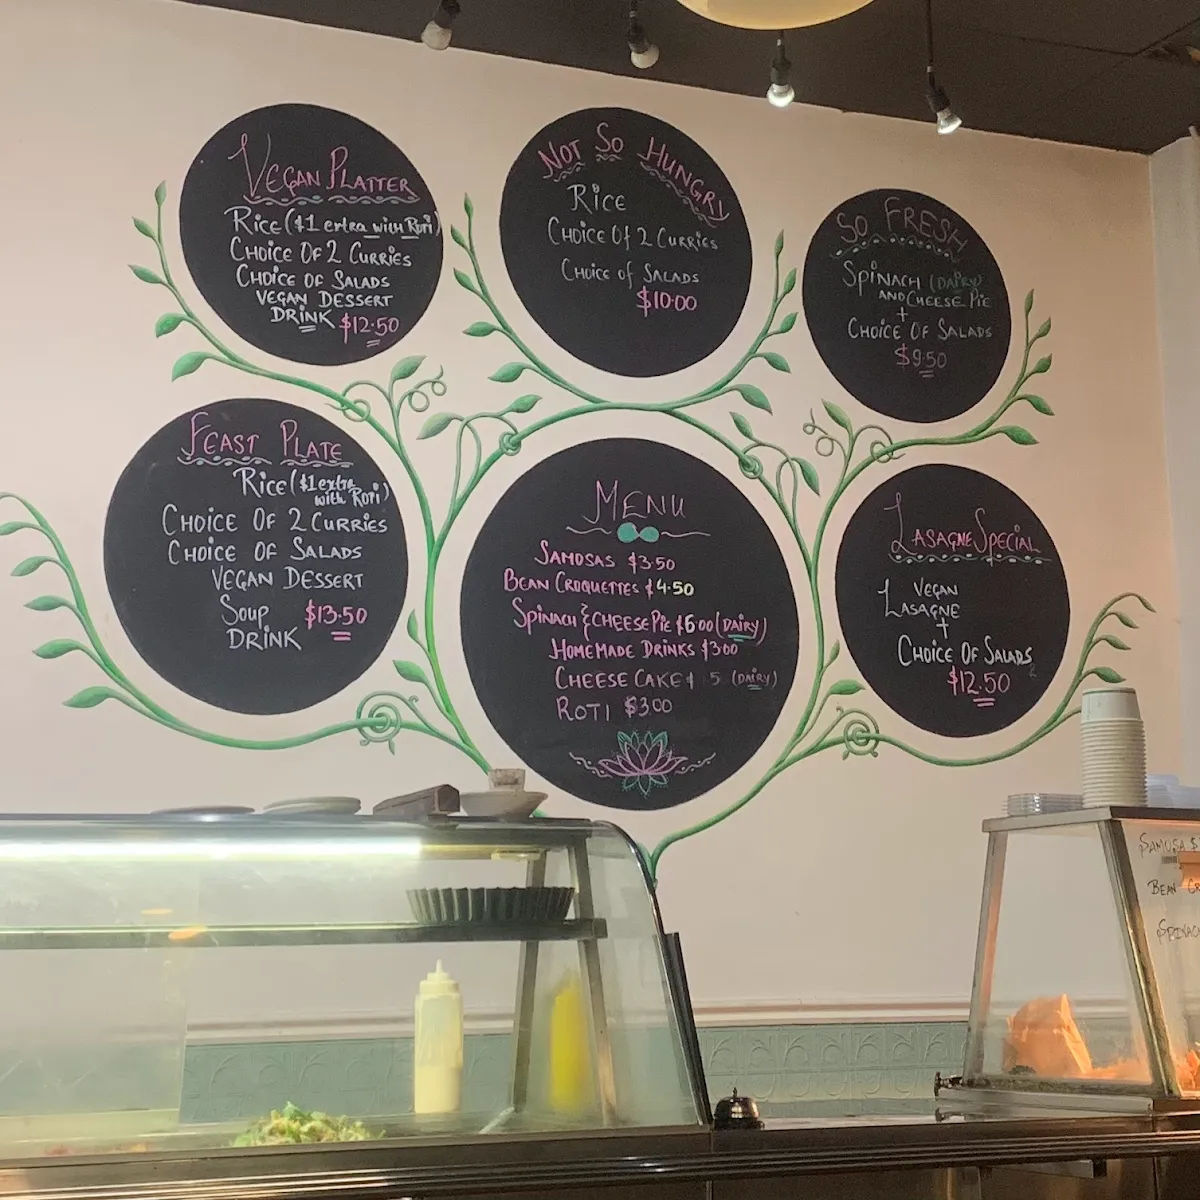 VEGAN PLATTER
RICE ($1 extra with Roti)
CHOICE OF 2 CURRIES
CHOICE OF SALADS
VEGAN DESSERT
DRINK $12.50
NOT SO HUNGRY
RICE
CHOICE Of 2 CURRIES
CHOICE of SALADS
$10.00
SO FRESH
SPINACH (DAIRY)
AND CHEESE PIE
+
CHOICE OF SALADS
$9.50
FEAST PLATE
RICE ($1 extra
with ROTI)
CHOICE OF 2 CURRIES
CHOICE OF SALADS
VEGAN DESSERT
SOUP $13.50
DRINK
MENU
SAMOSAS $3.50
BEAN CROQUETTES $4.50
SPINACH & CHEESE PIE $6.00 (DAIRY)
HOMEMADE DRINKS $3.00
CHEESECAKE $ 5 (DAIRY)
ROTI $3.00
LASAGNE SPECIAL
VEGAN
LASAGNE
+
CHOICE OF SALADS
$12.50
SAMOSA $
BEAN